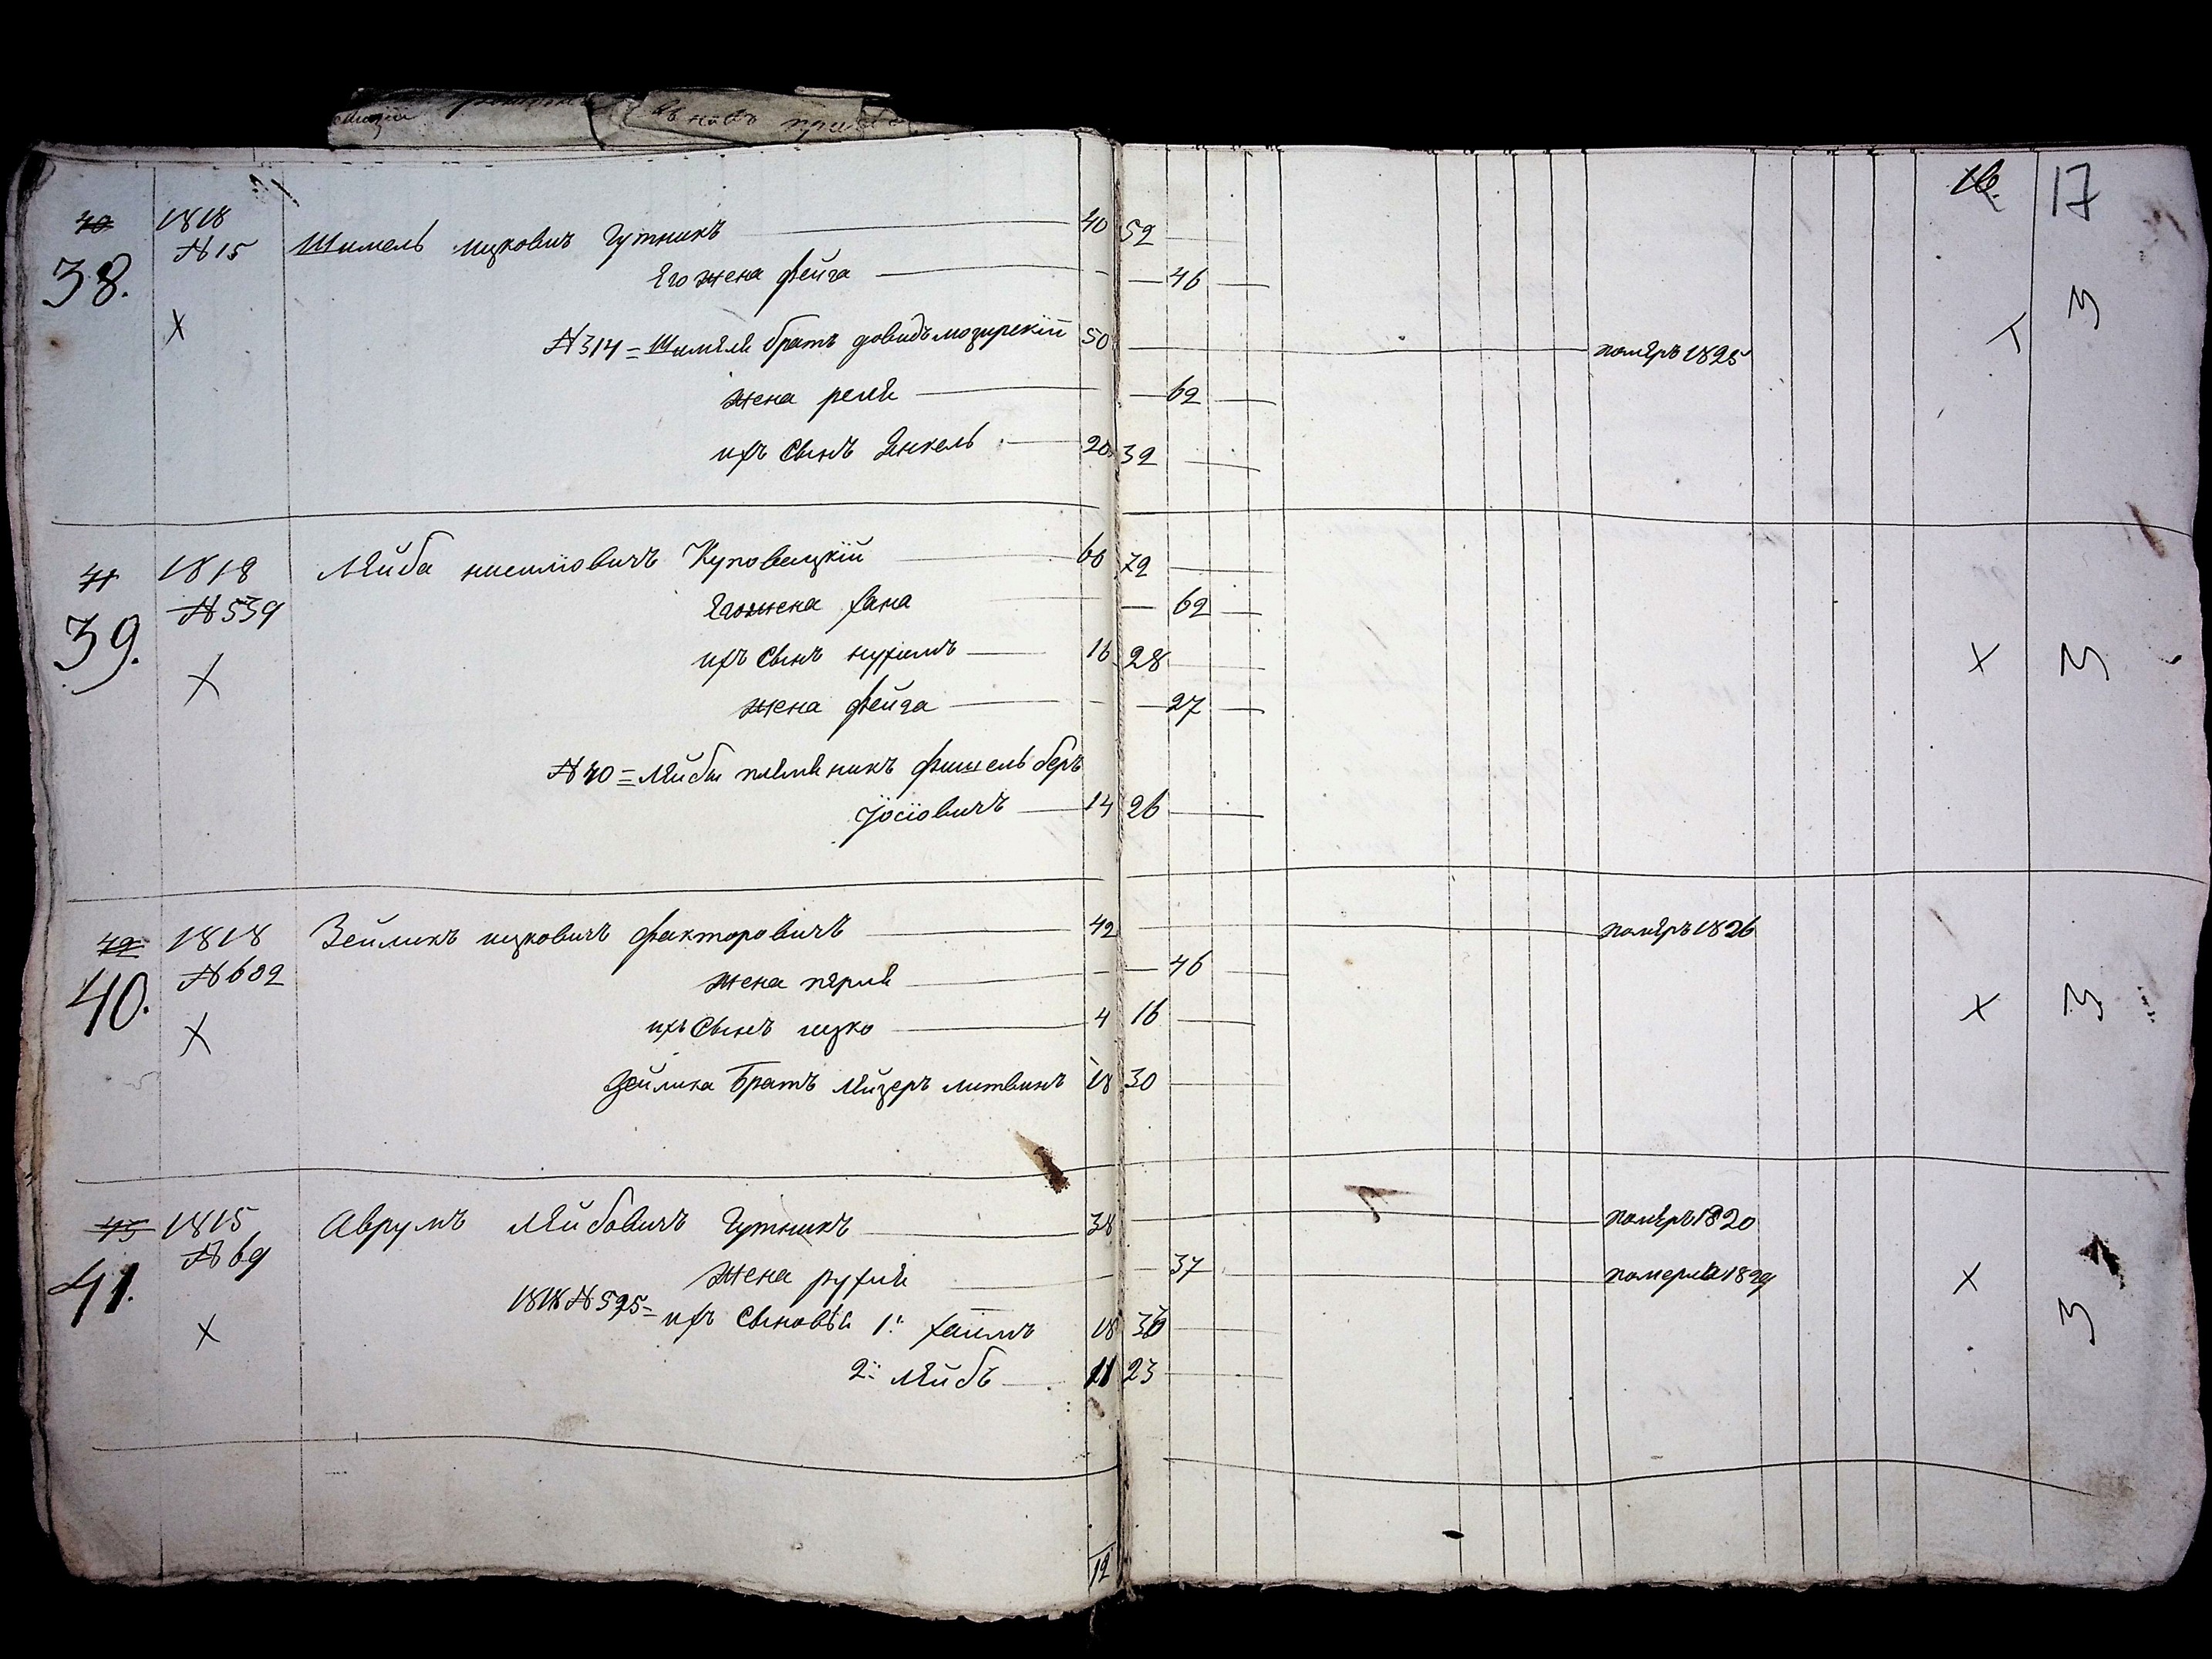 16. 17
40 1818 Шимель ицковичъ Гутникъ 40 52
38. №15 Его жена фейга 46
№314 = Шимеля братъ довидъ мозирскій 50 помѣръ 1825
жена реля 62
ихъ Сынъ Янкель 20 32
3
41 1818 Лейба нисиловичъ Куповецкій 60 72
39. №539 Его жена хана 62
ихъ Сынъ нухимъ 16 28
жена фейга 27
№40 = Лейбы племеникъ фишель беръ
Іосіовичъ 14 26
3
42 1818 Зейликъ ицковичъ факторовичъ 42 помѣръ 1826
40. №602 жена перля 46
ихъ Сынъ ицко 4 16
Зейлика Братъ лейзеръ литвинъ 18 30
3
43 1815 Аврумъ Лейбовичъ Гутникъ 38 помѣръ 1820
41. №69 жена рухля 37 померла 1829
1818 №525 = ихъ Сыновья 1: хаимъ 18 30
2: лейбъ 11 23
3
12